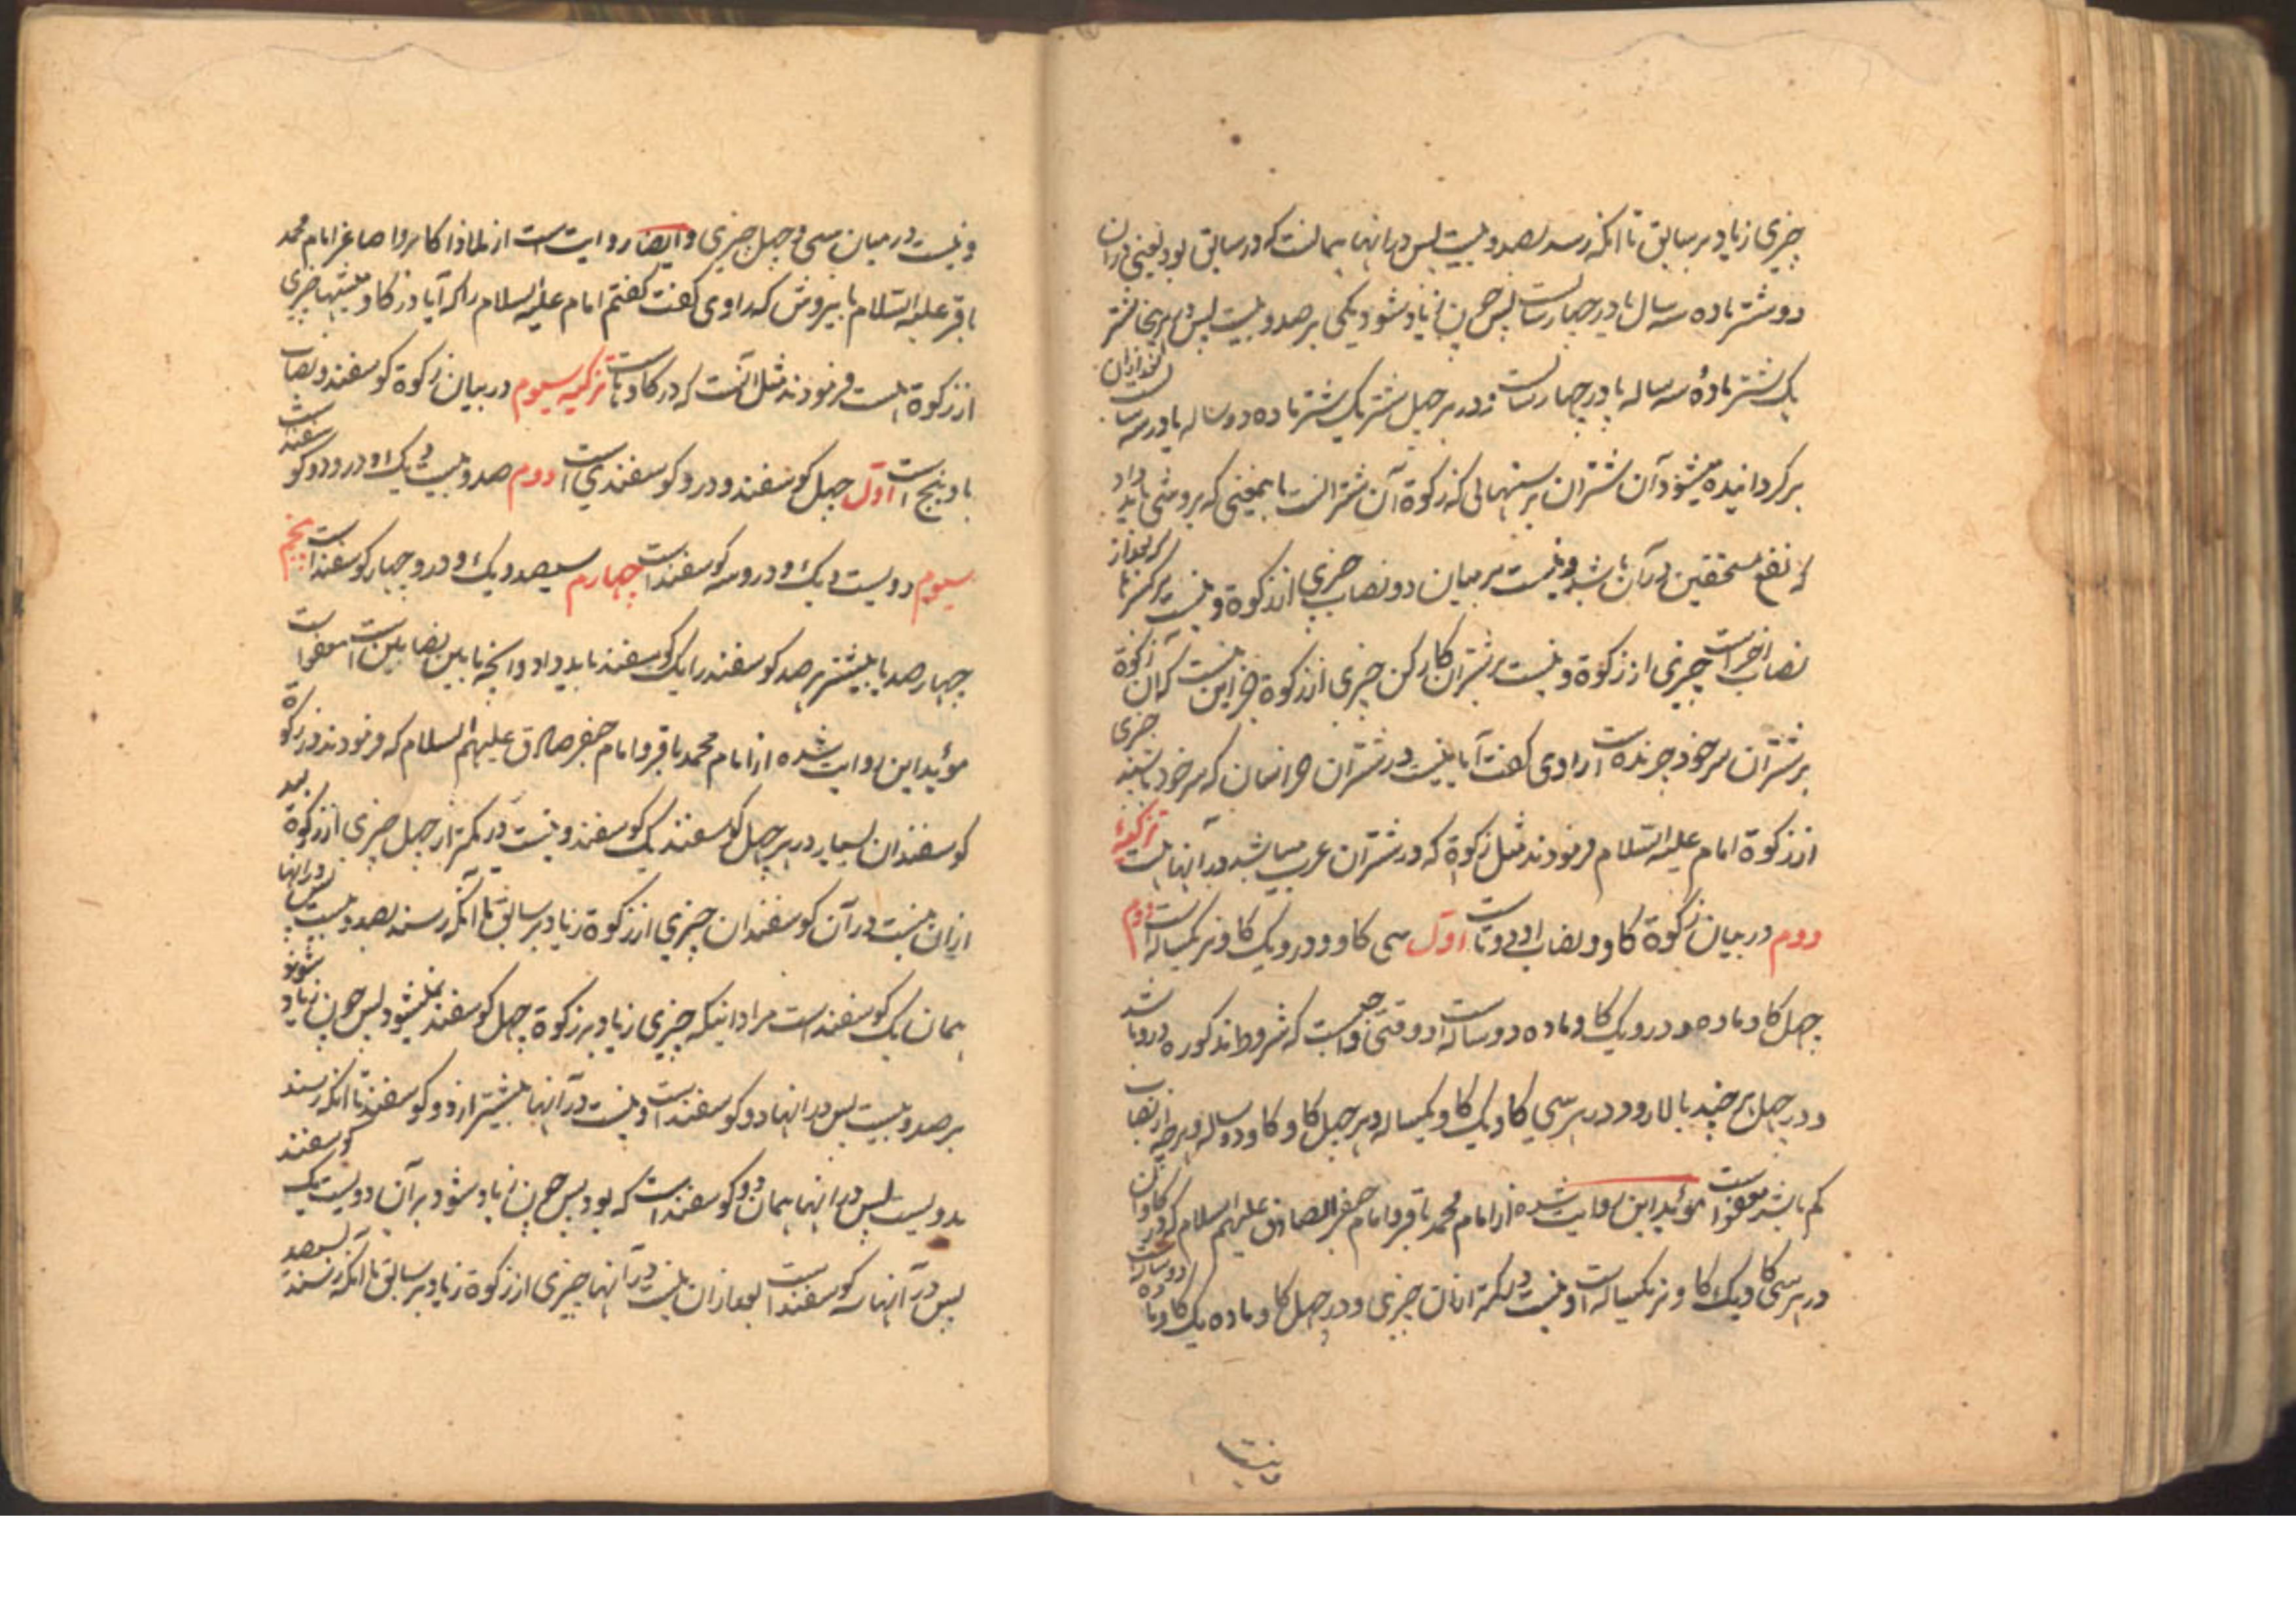 چیزی زیاد بر سابق تا آنکه رسد بصد و بیست پس در انها همانست که در سابق بود یعنی در ان
دو شتر ماده سه سال پا در چهار است پس چون زیاد شود یکی بر صد و بیست پس در هر پنجاه شتر
یک شتر مادهٔ سه ساله پا در چهار است و در هر چهل شتر یک شتر ماده دو ساله پا در سه است
برگردانیده میشود آن شتران بر سنهائی که زکوة آن شتر انست باینمعنی که بروشی باید داد
که نفع مستحقین در آن باشد و نیست در میان دو نصاب چیزی از زکوة و نیست بر کسر تا
نصاب اخر است چیزی از زکوة و نیست بر شتران کارکن چیزی از زکوة جز این نیست که ان زکوة
بر شتران سر خود چرنده است راوی گفت آیا نیست در شتران خراسان که سر خود باشند چیزی
از زکوة امام علیه السلام فرمودند مثل زکوة که در شتران عرب میباشد در آنها هست تزکیهٔ
دوم در بیان زکوة کاو و نصاب او دوتا است اول سی کاو و در و یک کاو نر یکساله است دوم
چهل کاو ماده و در و یک کاو ماده دو ساله است و وقتی واجبست که شروط مذکوره در و باشد
و در چهل هر چند بالا رود در هر سی کاو یک کاو یکساله و هر چهل کاو کاو دو ساله و هر چه از نصاب
کم باشد معفو است مؤید این روایت شده از امام محمد باقر و امام جعفر الصادق علیهم السلام که در کاوان
در هر سی کاو یک کاو نر یکساله است و نیست در کمتر از ان چیزی و در چهل کاو ماده یک کاو ماده دو ساله است
و نیست
و نیست در میان سی و چهل چیزی و ایضا روایت است از امام محمد
باقر علیه السلام باینروش که راوی گفت گفتم امام علیه السلام را که آیا در کاو میشها چیزی
از زکوة هست فرمودند مثل آنست که در کاوها است تزکیه سیوم در بیان زکوة کوسفند و نصاب
او پنج است اول چهل کوسفند و در و کوسفندی است دوم صد و بیست و یک و در و دو کوسفند است
سیوم دویست و یک و در و سه کوسفند است چهارم سیصد و یک و در و چهار کوسفند است پنجم
چهار صد یا بیشتر هر صد کوسفند را یک کوسفند باید داد و انچه ما بین نصابین است معفو است
مؤید این روایت شده از امام محمد باقر و امام جعفر صادق علیهم السلام که فرمودند در زکوة
کوسفندان بسیار در هر چهل کوسفند یک کوسفند و نیست در کمتر از چهل چیزی از زکوة بعد
از ان نیست در آن کوسفندان چیزی از زکوة زیاد بر سابق تا آنکه رسند بصد و بیست پس در انها
همان یک کوسفند است مراد اینکه چیزی زیاد بر زکوة چهل کوسفند نمیشود پس چون زیاد شوند
بر صد و بیست پس در انها دو کوسفند است و نیست در آنها بیشتر از دو کوسفند تا آنکه رسند
بدویست پس در انها همان دو کوسفند است که بود پس چون زیاد شود بر آن دویست یک کوسفند
پس در آنها سه کوسفند است بعد از ان نیست در آنها چیزی از زکوة زیاد بر سابق تا آنکه رسند بسیصد